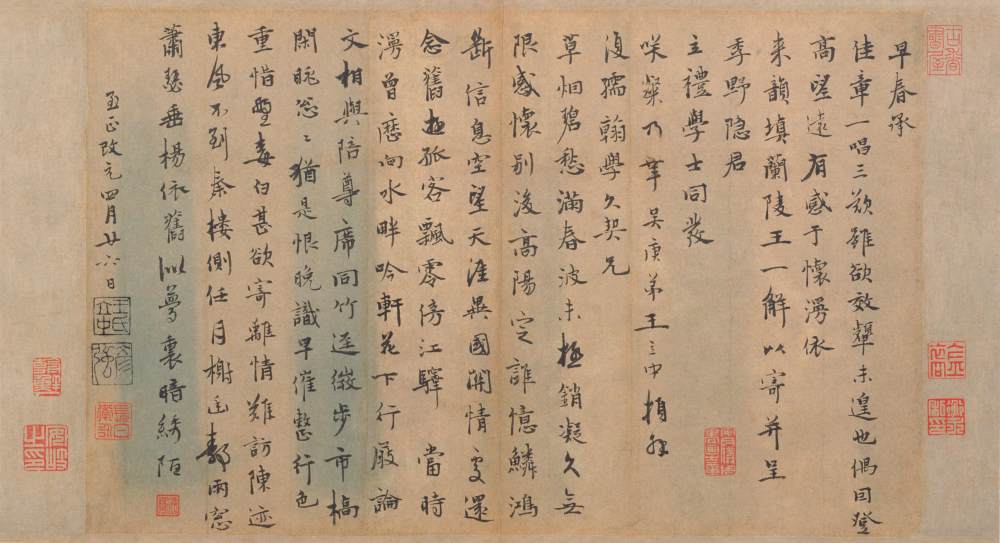 早春承
佳章一唱三歎雖欲效顰未遑也偶因登
高望遠有感于懷漫依
来韻填蘭陵王一解以寄并呈
季野隐君
立禮學士同發
咲粲乃幸吴庚弟王立中頓拜
復孺翰學久契兄
草烟碧愁滿春波未極銷凝久無
限感懷别後高陽定誰憶鱗鴻
斷信息空望天涯異國關情處還
念舊遊孤客飄零傍江驛 當時
漫曾歷向水畔吟軒花下行廚論
文相與陪尊席同竹逕微步市橋
閑眺忩〻猶是恨晚識早催整行色
重惜鬢毛白甚欲寄離情難訪陳迹
東風不到秦樓側任月榭雨窓
蕭瑟垂楊依舊似夢裏暗綺陌
至正改元四月廿六日
王氏
彦強